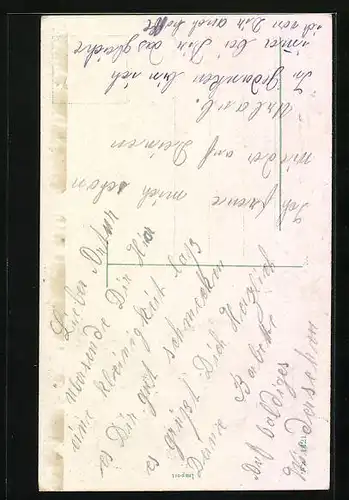 Lieber Artur
übersende Dir hier
eine kleinigkeit lass
es Dir gut schmecken
es grüßt Dich Herzlich
Deine Babette
Auf baldiges
Wiedersehen
Ich freue mich schon
wieder auf Deinen
Urlaub.
In Gedanken bin ich
immer bei Dir das gleiche
ich von Dir auch hoffe